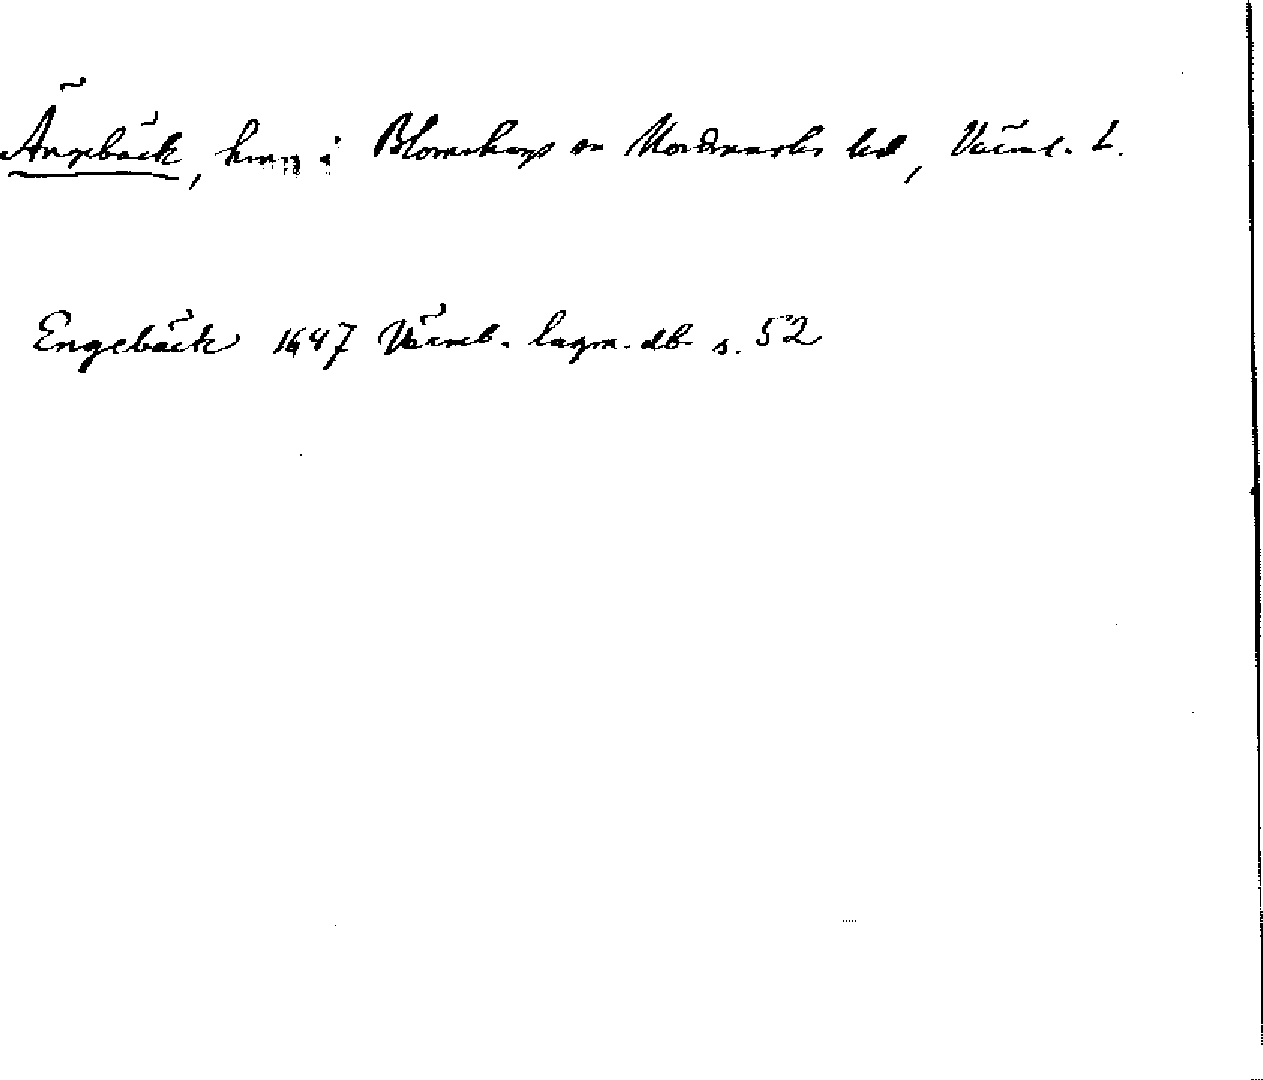 Ängebäck, hmn i Blomskogs sn Nordmarks hd, Värml. L.
Engebäck 1647 Värml. lagm. db s. 52